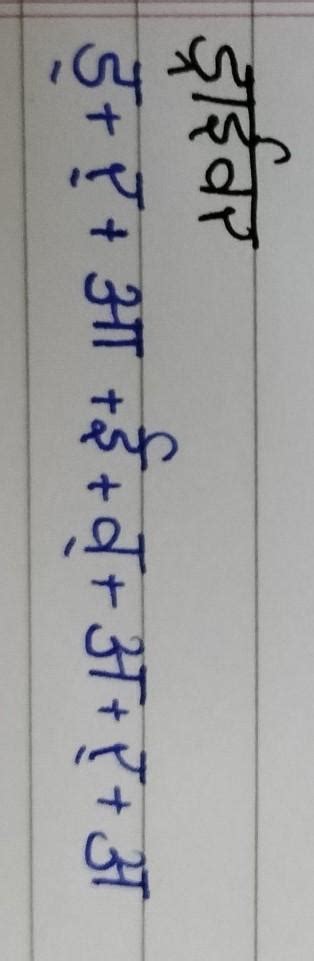 ड्राईवर
ड् + र् + आ + ई + व् + अ + र् + अ